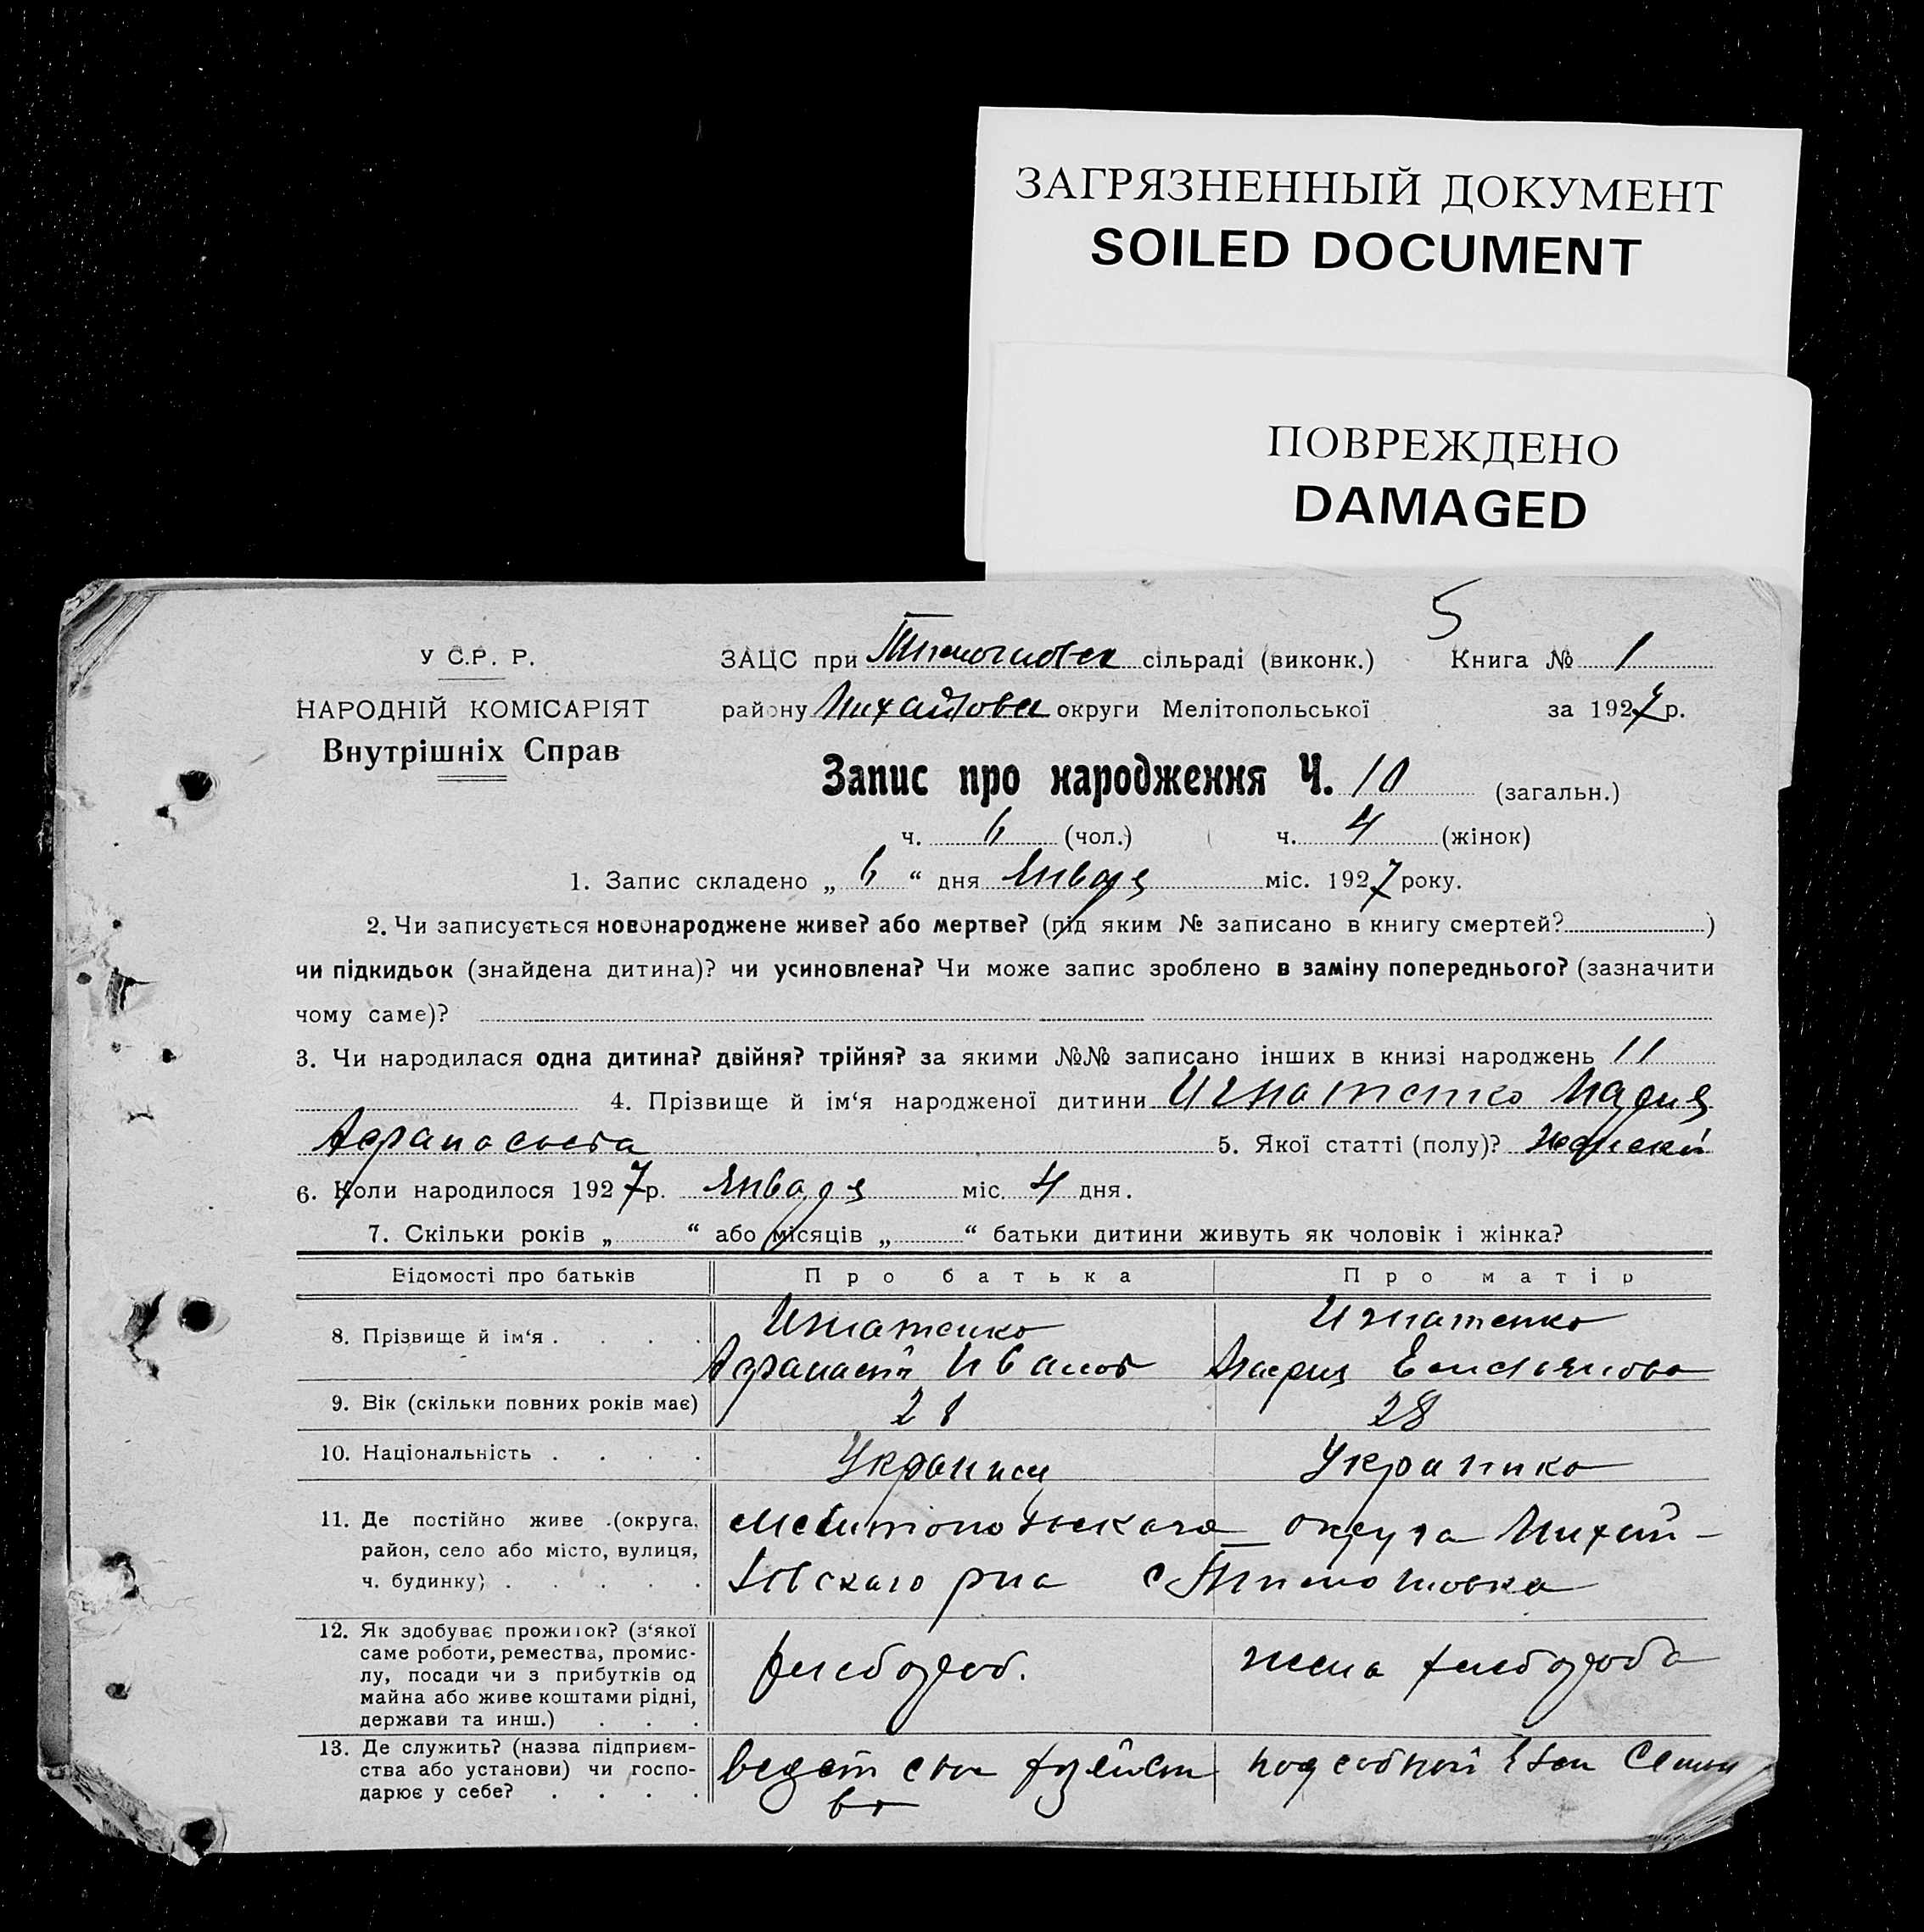 ЗАГРЯЗНЕННЫЙ ДОКУМЕНТ
SOILED DOCUMENT
ПОВРЕЖДЕНО
DAMAGED
5
У С.Р. Р.
НАРОДНІЙ КОМІСАРІЯТ
Внутрішніх Справ
ЗАЦС при Тимошовск сільраді (виконк.) Книга № 1
району Михайловск округи Мелітопольської за 1927 р.
Запис про народження Ч. 10 (загальн.)
ч. 6 (чол.) ч. 4 (жінок)
1. Запис складено „ 6 “ дня Января міс. 1927 року.
2. Чи записується новонароджене живе? або мертве? (під яким № записано в книгу смертей? )
чи підкидьок (знайдена дитина)? чи усиновлена? Чи може запис зроблено в заміну попереднього? (зазначити
чому саме)?
3. Чи народилася одна дитина? двійня? трійня? за якими №№ записано інших в книзі народжень 11
4. Прізвище й ім‘я народженої дитини Игнатенко Мария
Афанасьева 5. Якої статті (полу)? женский
6. Коли народилося 1927 р. Января міс. 4 дня.
7. Скільки років „ “ або місяців „ “ батьки дитини живуть як чоловік і жінка?
Відомості про батьків Про батька Про матір
8. Прізвище й ім‘я . . . . Игнатенко Игнатенко
Афанасий Иванов Мария Емельянова
9. Вік (скільки повних років має) 28 28
10. Національність . . . . Украинец Украинка
11. Де постійно живе (округа, Мелитопольскага округа Михай-
район, село або місто, вулиця,
ч. будинку) . . . . . ловскаго р-на с Тимошовка
12. Як здобуває прожиток? (з‘якої
саме роботи, ремества, промис-
лу, посади чи з прибутків од хлебороб. жена хлебороба
майна або живе коштами рідні,
держави та инш.) . . .
13. Де служить? (назва підприєм-
ства або установи) чи госпо- ведет свое хозяйст подсобной член семьи
дарює у себе? . . . . во